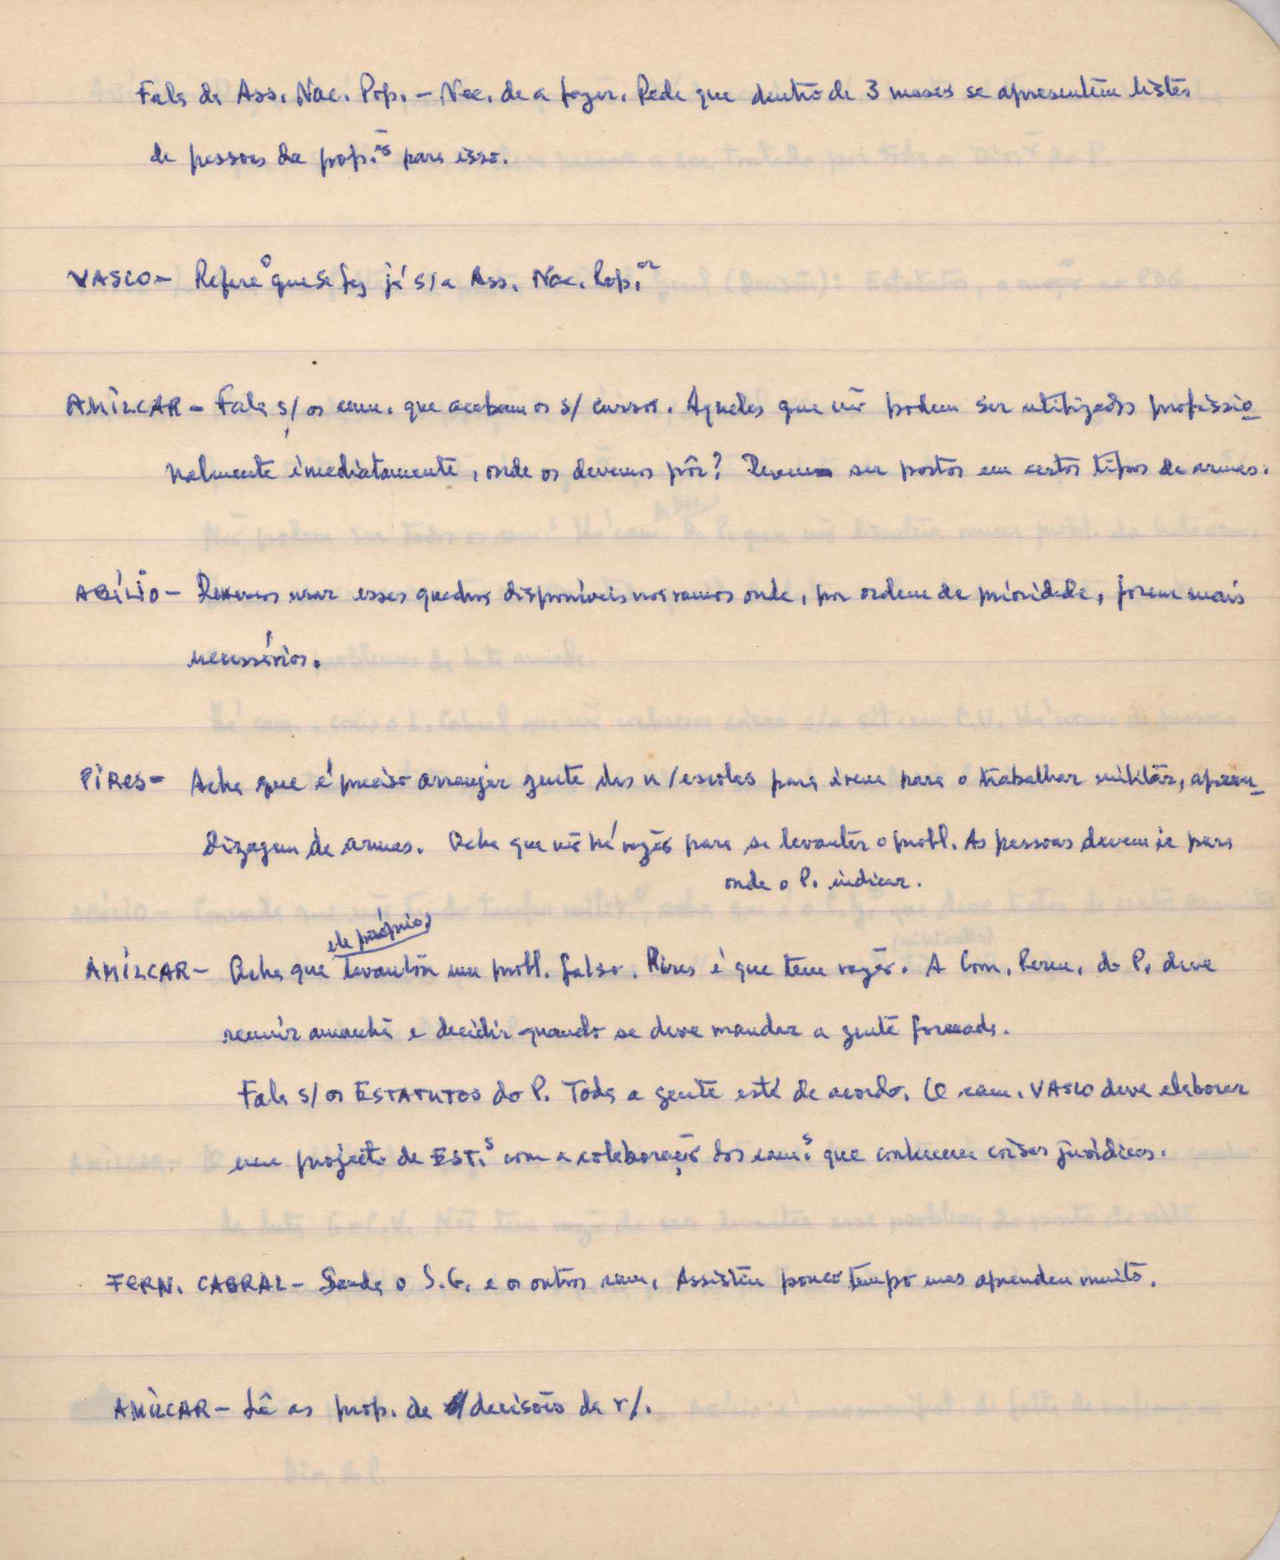 Fala da Ass. Nac. Pop. – Nec. de a fazer. Pede que dentro de 3 meses se apresentem listas
de pessoas da pop.ões para isso.
VASCO – Refere o que se fez já s/ a Ass. Nac. Pop.ar
AMÍLCAR – Fala s/ os cam. que acabam os s/ cursos. Aqueles que não podem ser utilizados profissio-
nalmente imediatamente, onde os devemos pôr? Devem ser postos em certos tipos de armas.
ABÍLIO – Devemos usar esses quadros disponíveis nos ramos onde, por ordem de prioridade, forem mais
necessários.
PIRES – Acha que é preciso arranjar gente das n/escolas para irem para o trabalhar militar, apren-
dizagem de armas. Acha que não há razão para se levantar o probl. As pessoas devem ir para
onde o P. indicar.
ele próprio
AMÍLCAR – Acha que levantou um probl. falso. Pires é que tem razão. A Com. Perm. do P. deve
reunir amanhã e decidir quando se deve mandar a gente formada.
Fala s/ os ESTATUTOS do P. Toda a gente está de acordo. O cam. VASCO deve elaborar
um projecto de EST.s com a colaboração dos cam.s que conhecem coisas jurídicas.
FERN. CABRAL – Saúda o S.G. e os outros cam. Assistiu pouco tempo mas aprendeu muito.
AMÍLCAR – Lê as prop. de decisões da r/.